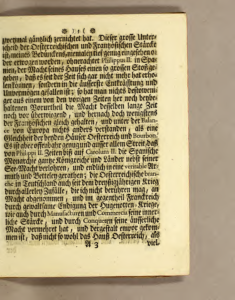 ❀ ) 5 ( ❀
zweymal gäntzlich zernichtet hat. Dieser grosse Unter-
scheid der Oesterreichischen und Frantzösischen Stärcke
ist, meines Bedünckens, niemalen tief genug eingesehen o-
der erwogen worden, ohnerachtet Philippus II. in Spa-
nien, der Macht seines Hauses einen so grossen Stoß ge-
geben, daß es seit der Zeit sich gar nicht mehr hat erho-
len können, sondern in die äusserste Entkräftung und
Unvermögen gefallen ist; so hat man nichts destoweni-
ger aus einem von den vorigen Zeiten her noch beybe-
haltenen Vorurtheil die Macht desselben lange Zeit
noch vor überwiegend, und hernach doch wenigstens
der Frantzösischen gleich gehalten, und unter der Balan-
ce von Europa nichts anders verstanden, als eine
Gleichheit der beyden Häuser Oesterreich und Bourbon.
Es ist aber offenbahr genug und ausser allem Streit, daß
von Philippi II. Zeiten biß auf Carolum II. die Spanische
Monarchie gantze Königreiche und Länder nebst seiner
See-Macht verlohren, und endlich in eine veritable Ar-
muth und Betteley gerathen; die Oesterreichische bran-
che in Teutschland auch seit dem dreyßigjährigen Krieg
durch allerley Zufälle, die ich nicht berühren mag, an
Macht abgenommen, und im gegentheil Franckreich
durch gewaltsame Endigung der Hugenotten-Kriege,
wie auch durch Manufacturen und Commercia seine inner-
liche Stärcke, und durch Conqueten seine äusserliche
Macht vermehret hat, und dergestalt empor gekom-
men ist, daß nicht so wohl das Hauß Oesterreich, als
A 3
viel-